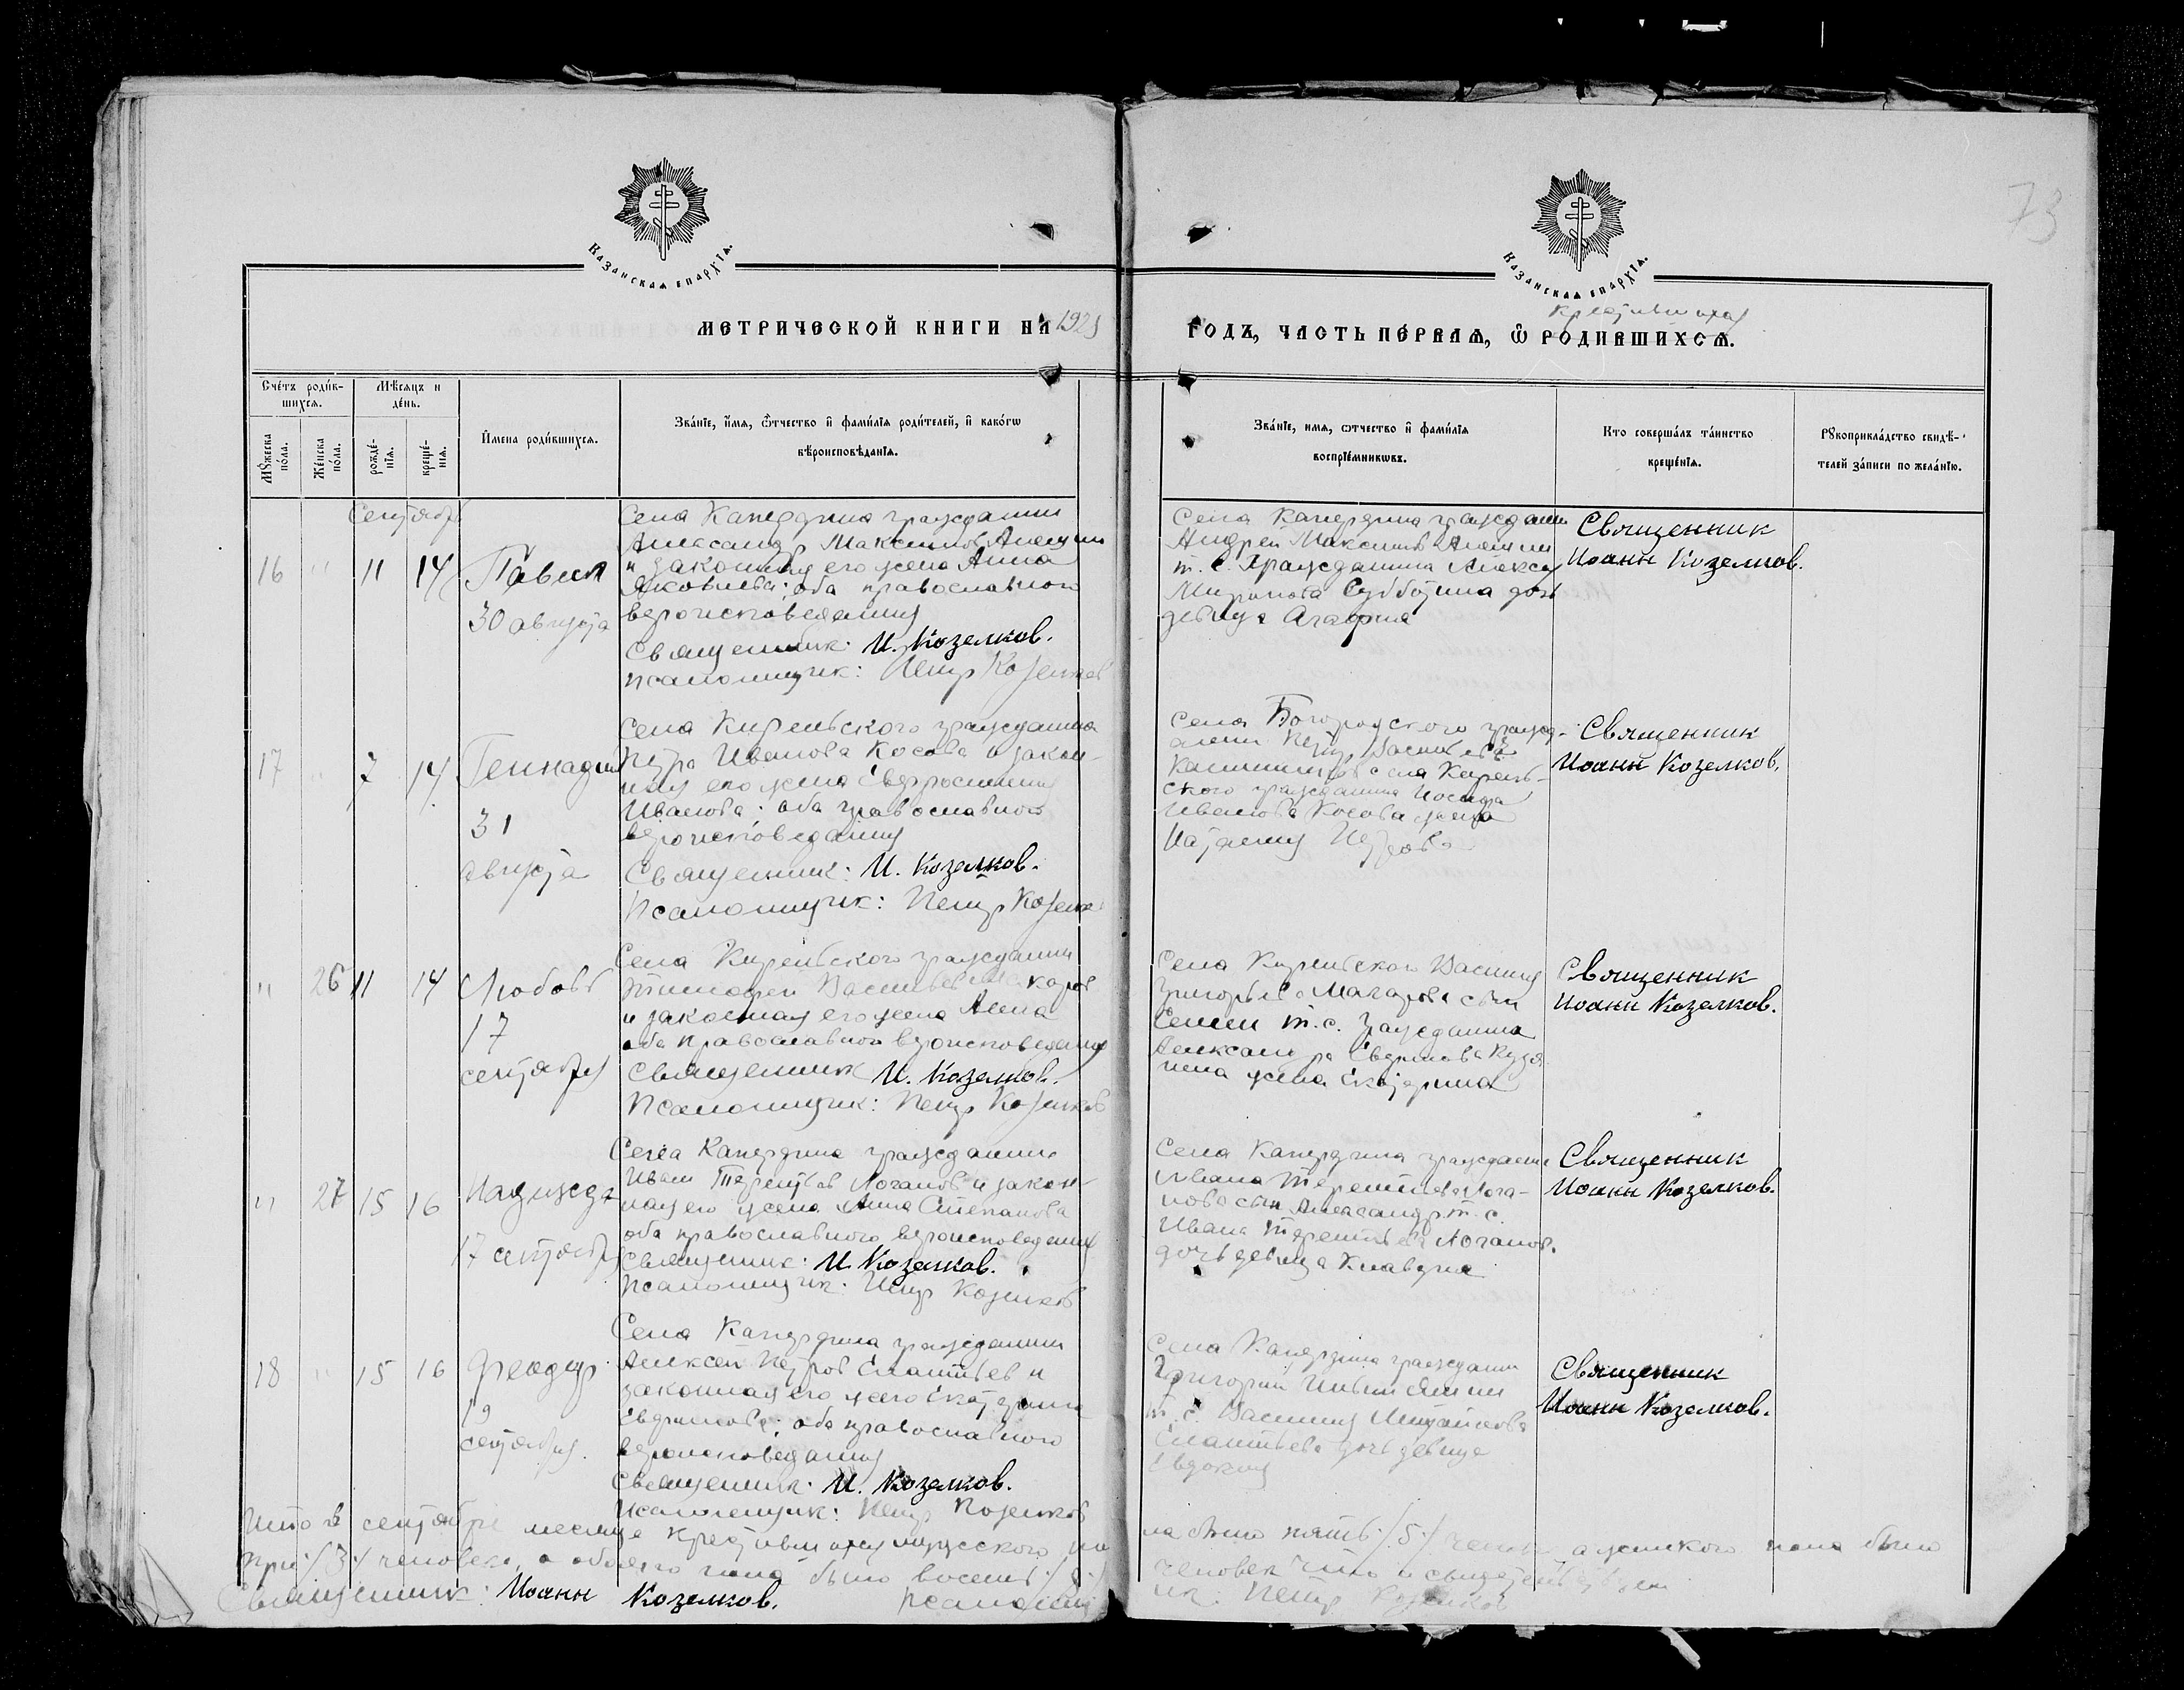 73
Казанская епархїя.
Казанская епархїя.
Крестившихся
МЕТРИЧЕСКОЙ КНИГИ НА 1923
ГОДЪ, ЧАСТЬ ПЕ́РВАЯ, Ѽ РОДИВШИХСЯ.
Сче́тъ роди́в-
шихся.
Мѣ́сяцъ и
де́нь.
Мꙋжеска
по́ла.
Же́нска
по́ла.
рожде́-
нїя.
креще́-
нїя.
И҆мена роди́вшихся.
Зва́нїе, и҆́мя, ѻ҆́тчество и҆ фами́лїя роди́телей, и҆ како́гѡ
вѣроисповѣ́данїя.
Зва́нїе, имя, ѻтчество и҆ фами́лїя
воспрїе́мникѡвъ.
Кто соверша́лъ та́инство
креще́нїя.
Рꙋкоприкла́дство свидѣ́-
телей за́писи по жела́нїю.
Сентябрь
16 " 11 14 Павел
30 августа
Села гражданин
Александр Максимов Алешин
и законная его жена Анна
Яковлева; оба православного
вероисповедания
Священник: И. Козелков.
Псаломщик: Петр Козелков
Села гражданин
Андрей Максимов Алешин
т. с. Гражданина Алексея
Миронова Субботина дочь
девица Агафия
Священник
Иоанн Козелков.
17 " 7 14 Геннадий
31
августа
Села Кирельского гражданина
Петра Иванова Косова и закон-
ная его жена Евфросиния
Иванова; оба православного
вероисповедания
Священник: И. Козелков.
Псаломщик: Петр Козелков
Села Богородского гражд-
анин Петр Васильев
села Кирель-
ского гражданина Иосифа
Иванова Косова жена
Наталия Петрова
Священник
Иоанн Козелков.
" 26 11 14 Любовь
17
сентября
Села Кирельского гражданин
Тимофей Васильев Макаров
и законная его жена Анна
оба православного вероисповедания
Священник И. Козелков.
Псаломщик: Петр Козелков
Села Кирельского Василия
Григорьева Макарова сын
Семен т. с. Гражданина
Александра
жена Екатерина
Священник
Иоанн Козелков.
" 27 15 16 Надежда
17 сентября
Села гражданин
Иван Терентьев Логанов и закон-
ная его жена Анна Степанова
оба православного вероисповедания
Священник: И. Козелков.
Псаломщик: Петр Козелков
Села гражданина
Ивана Терентьева Лога-
нова сын Александр т. с.
Ивана Терентьева Логанов.
дочь девица Клавдия
Священник
Иоанн Козелков.
18 " 15 16 Феодор
19
сентября.
Села гражданин
Алексей Петров Елантьев и
законная его жена Екатерина
оба православного
вероисповедания
Священник: И. Козелков.
Псаломщик: Петр Козелков
Села гражданин
Григорий
т. с. Василия Михайлова
Елантьева дочь девица
Евдокия
Священник
Иоанн Козелков.
Итого в сентябре месяце крестившихся мужского по
ла было пять /5/ а женского пола было
три /3/ человека, а обоего пола было восемь /8/
человек что и свидетельствуем
Священник: Иоанн Козелков. псаломщ
ик. Петр Козелков